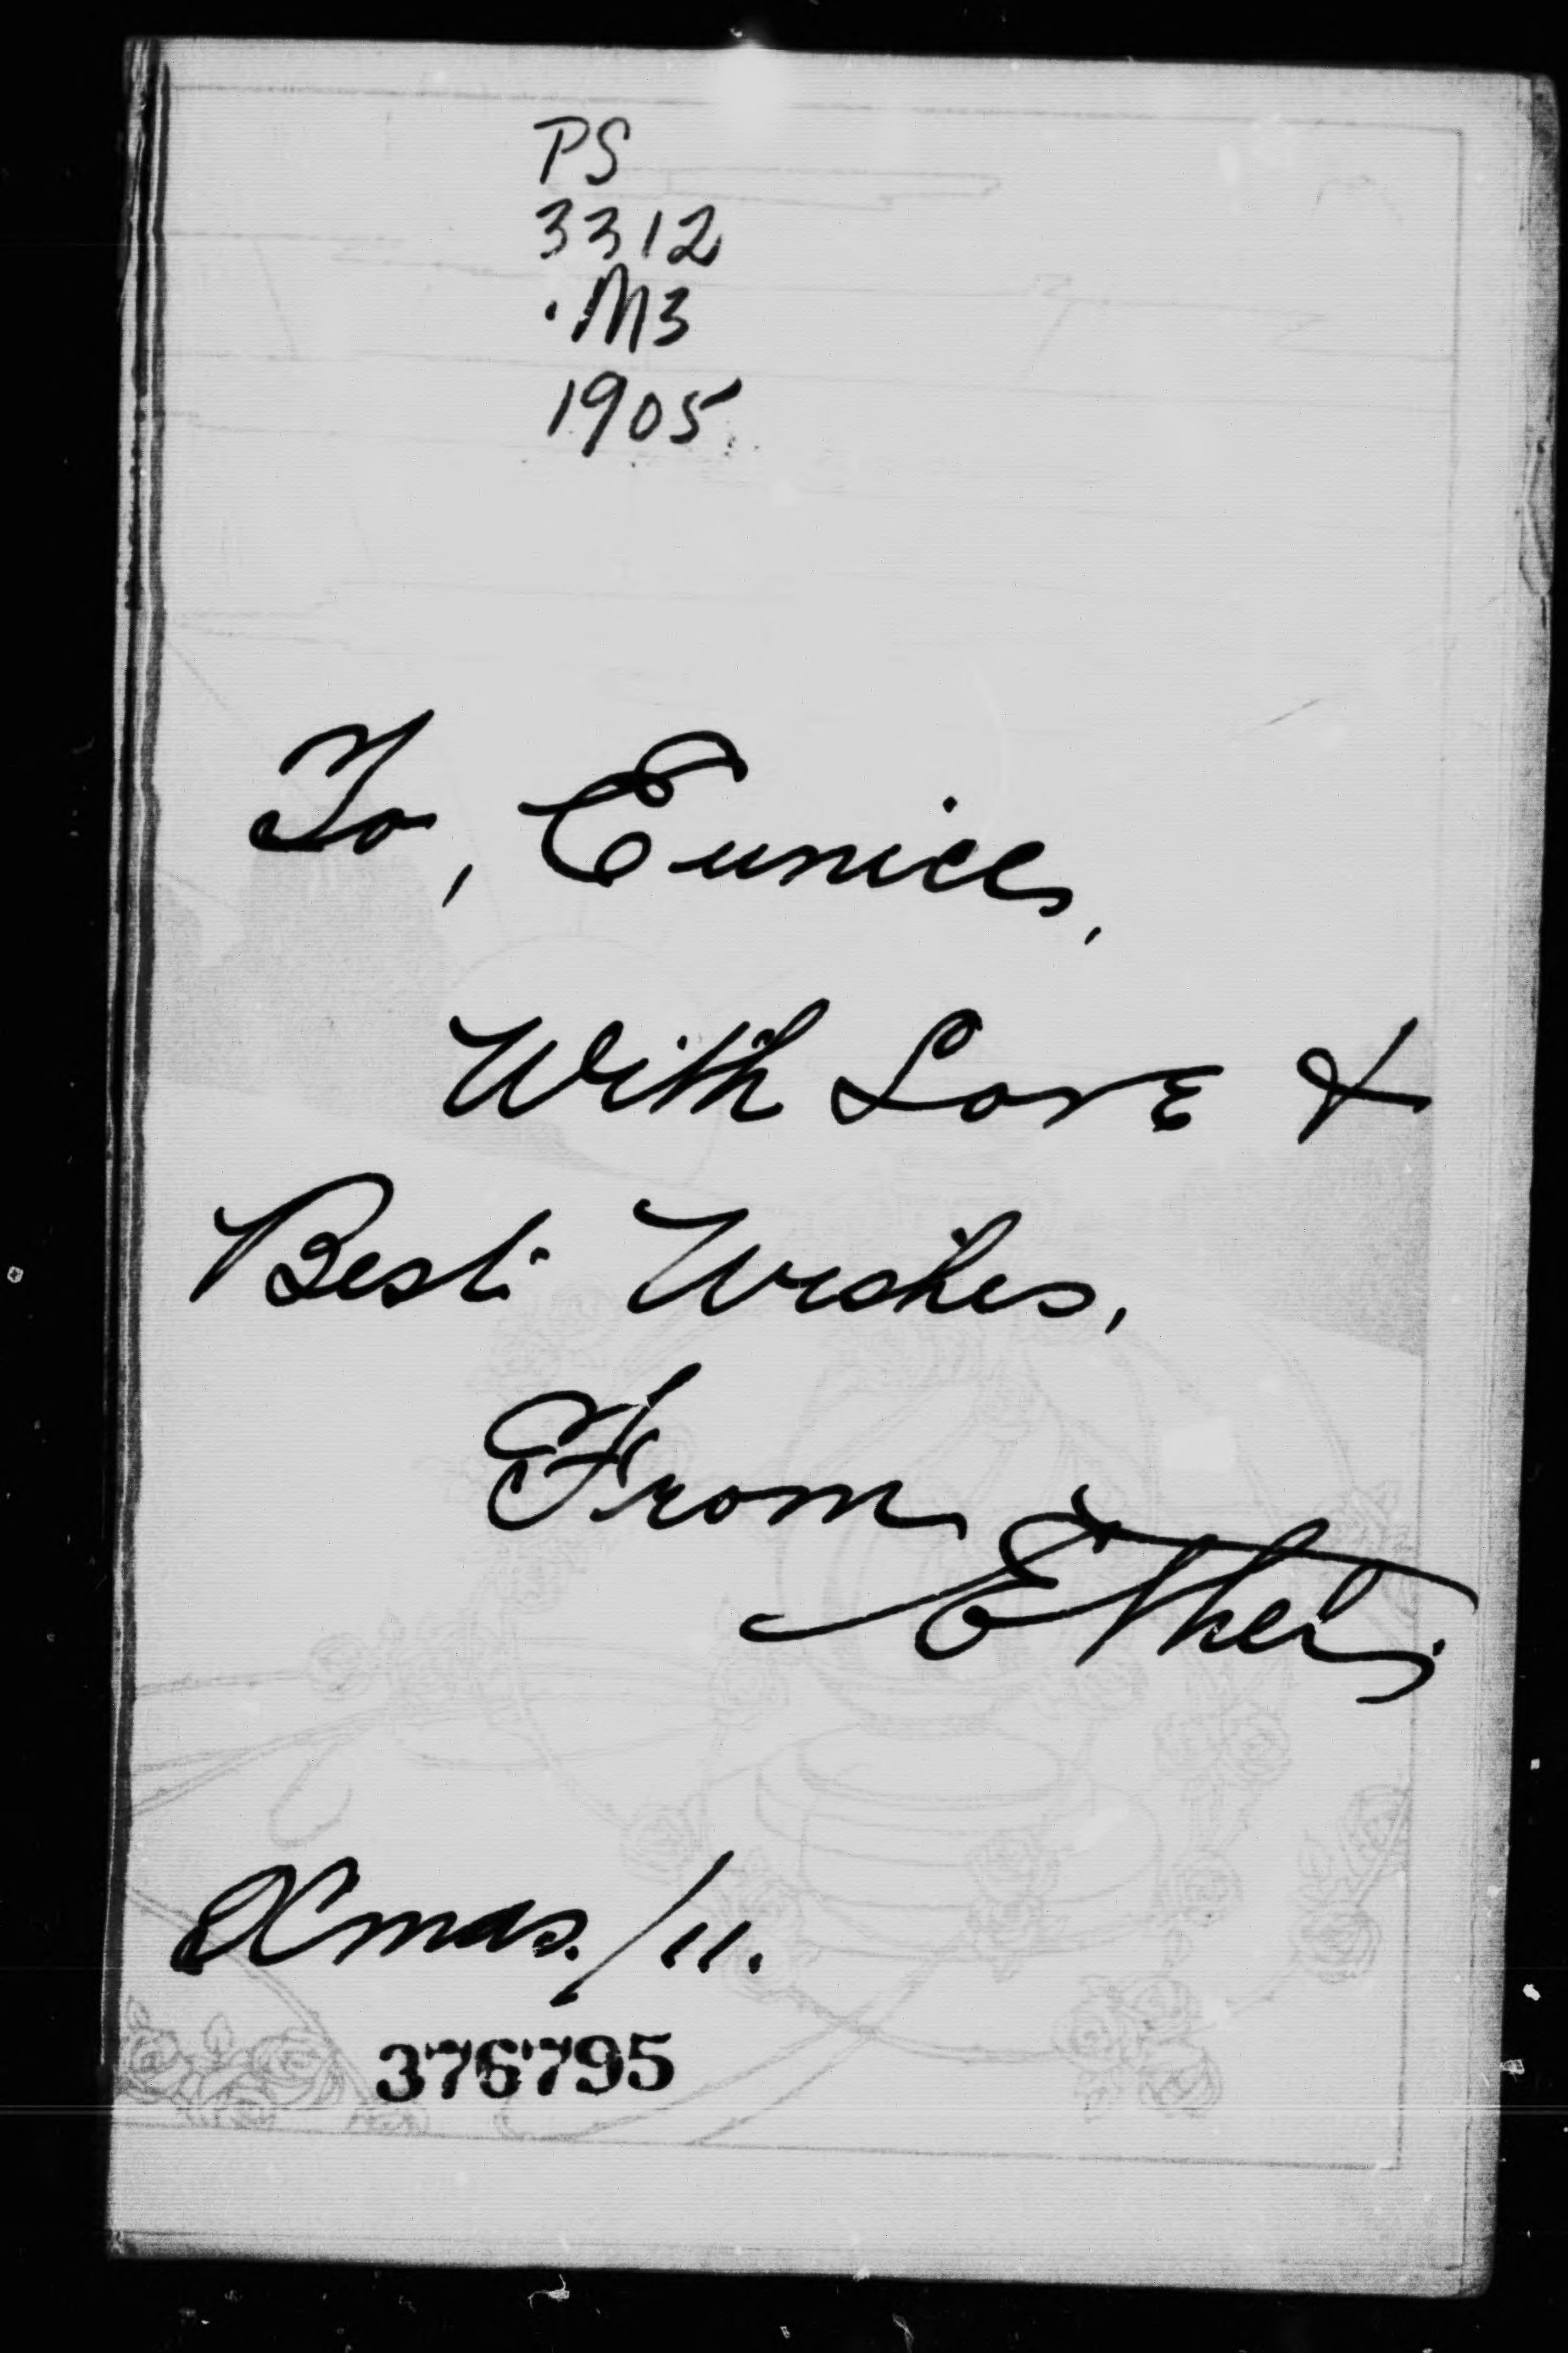 PS
3312
.M3
1905
To, Eunice,
With Love &
Best Wishes,
From
Ethel.
Xmas./11.
376795